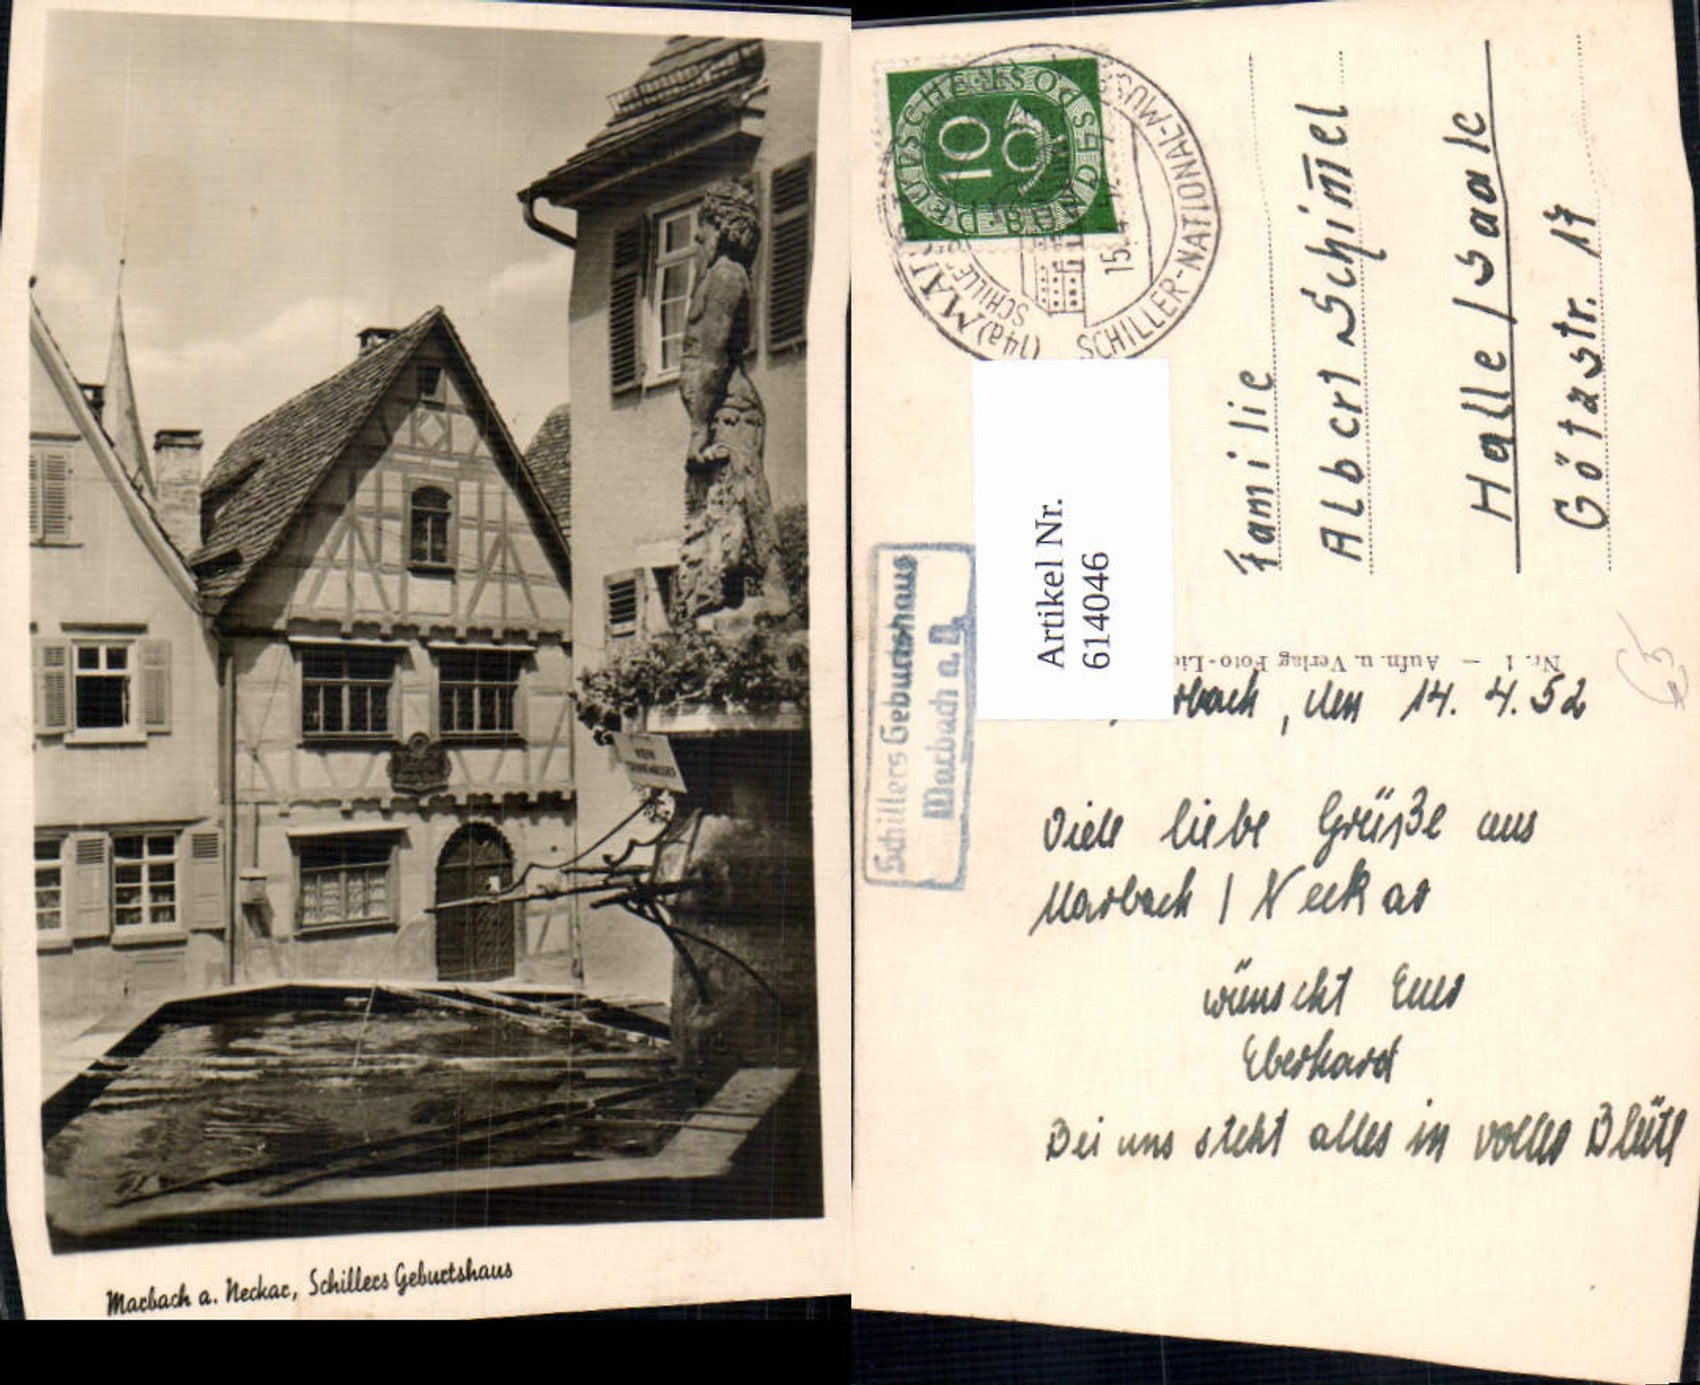 KEIN
Marbach a. Neckar, Schillers Geburtshaus
DEUTSCHE BUNDESPOST
10
(14a) MAR
SCHILLER-NATIONAL-MUS
SCHILLE
15.4.
Artikel Nr.
614046
Schillers Geburtshaus
Marbach a. N.
Familie
Albert Schim̄el
Halle / Saale
Götzstr. 17
Nr. 1 — Aufn. u. Verlag Foto-Lie
rbach, den 14. 4. 52
Viele liebe Grüße aus
Marbach / Neckar
wünscht Euer
Eberhard
Bei uns steht alles in voller Blüte